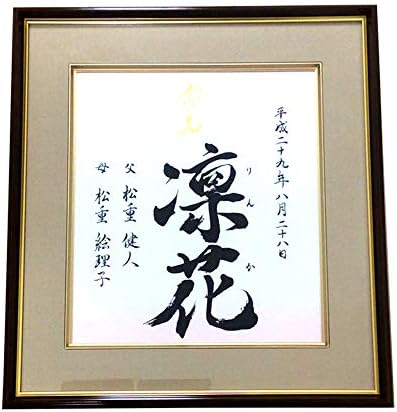 平成二十九年八月二十八日
命名
凛花
りんか
父 松重 健人
母 松重 絵理子